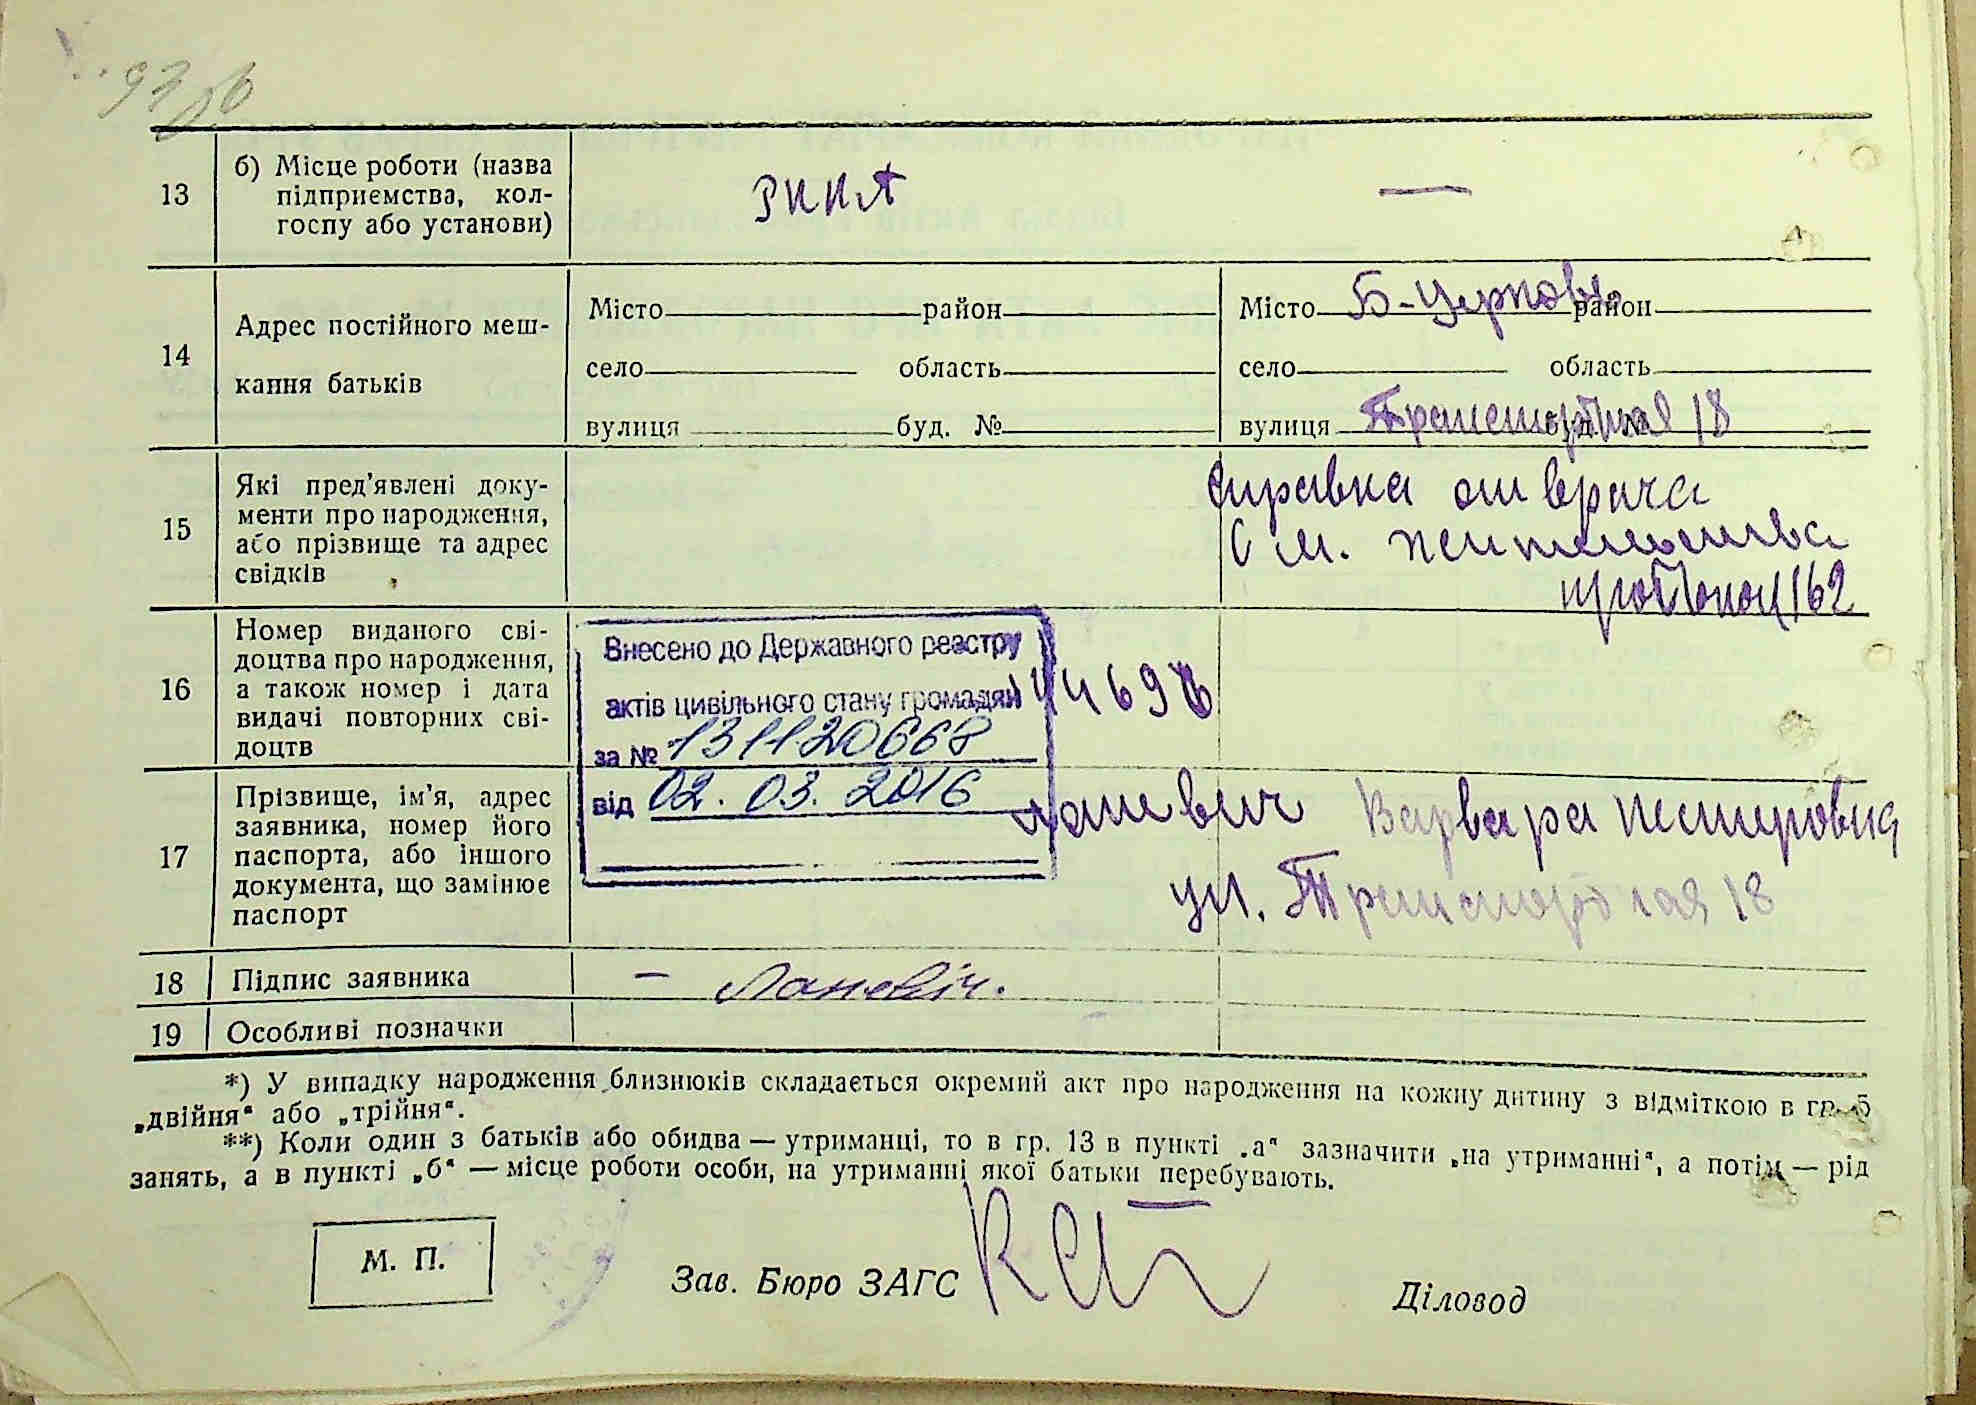 93 об
13
б) Місце роботи (назва
підприємства, кол-
госпу або установи)
РККА
—
14
Адрес постійного меш-
кання батьків
Місто район
село область
вулиця буд. №
Місто Б-Церковь район
село область
вулиця Транспортная 18
15
Які пред'явлені доку-
менти про народження,
або прізвище та адрес
свідків
справка от врача
16
Номер виданого сві-
доцтва про народження,
а також номер і дата
видачі повторних сві-
доцтв
Внесено до Державного реєстру
актів цивільного стану громадян
за № 131120668
від 02.03.2016
17
Прізвище, ім'я, адрес
заявника, номер його
паспорта, або іншого
документа, що замінює
паспорт
Ланевич Варвара Петровна
ул. Транспортная 18
18
Підпис заявника
— Ланевіч.
19
Особливі позначки
*) У випадку народження близнюків складається окремий акт про народження на кожну дитину з відміткою в гр. 5
„двійня“ або „трійня“.
**) Коли один з батьків або обидва — утриманці, то в гр. 13 в пункті „а“ зазначити „на утриманні“, а потім — рід
занять, а в пункті „б“ — місце роботи особи, на утриманні якої батьки перебувають.
М. П.
Зав. Бюро ЗАГС
Діловод